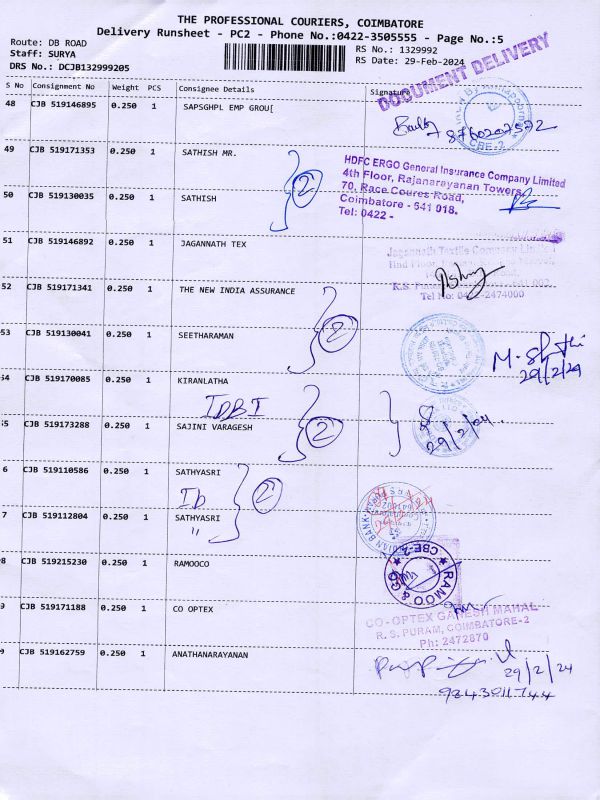 THE PROFESSIONAL COURIERS, COIMBATORE
Delivery Runsheet - PC2 - Phone No.:0422-3505555 - Page No.:5
Route: DB ROAD
Staff: SURYA
DRS No.: DCJB132999205
RS No.: 1329992
RS Date: 29-Feb-2024
DOCUMENT DELIVERY
S No Consignment No Weight PCS Consignee Details Signature
48 CJB 519146895 0.250 1 SAPSGHPL EMP GROU[
8760207572
CBE-2
49 CJB 519171353 0.250 1 SATHISH MR.
2
HDFC ERGO General Insurance Company Limited
4th Floor, Rajanarayanan Towers,
70, Race Coures Road,
Coimbatore - 641 018.
Tel: 0422 -
50 CJB 519130035 0.250 1 SATHISH
51 CJB 519146892 0.250 1 JAGANNATH TEX
Jagannath Textile Company Limited,
Tel No: 0422-2474000
52 CJB 519171341 0.250 1 THE NEW INDIA ASSURANCE
2
53 CJB 519130041 0.250 1 SEETHARAMAN
29/2/24
54 CJB 519170085 0.250 1 KIRANLATHA
IDBI
2
55 CJB 519173288 0.250 1 SAJINI VARAGESH
29/2/24
6 CJB 519110586 0.250 1 SATHYASRI
Ib
2
7 CJB 519112804 0.250 1 SATHYASRI
"
INDIAN BANK
8 CJB 519215230 0.250 1 RAMOOCO
RAMOO & CO
CBE-2
9 CJB 519171188 0.250 1 CO OPTEX
CO-OPTEX GANESH MAHAL
R. S. PURAM, COIMBATORE-2
Ph: 2472870
0 CJB 519162759 0.250 1 ANATHANARAYANAN
29/2/24
9843011744